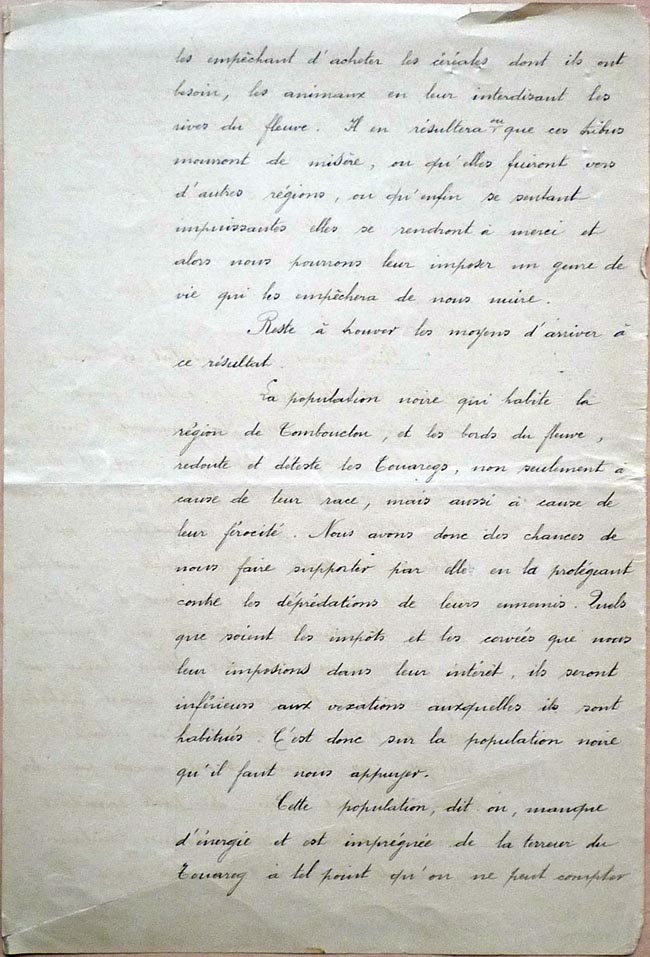 les empêchant d'acheter les céréales dont ils ont
besoin, les animaux en leur interdisant les
rives du fleuve. Il en résultera ou que ces tribus
mourront de misère, ou qu'elles fuiront vers
d'autres régions, ou qu'enfin se sentant
impuissantes elles se rendront à merci et
alors nous pourrons leur imposer un genre de
vie qui les empêchera de nous nuire.
Reste à trouver les moyens d'arriver à
ce résultat.
La population noire qui habite la
région de Tombouctou, et les bords du fleuve,
redoute et déteste les Touaregs, non seulement à
cause de leur race, mais aussi à cause de
leur férocité. Nous avons donc des chances de
nous faire supporter par elle en la protégeant
contre les déprédations de leurs ennemis. Quels
que soient les impôts et les corvées que nous
leur imposions dans leur intérêt, ils seront
inférieurs aux vexations auxquelles ils sont
habitués. C'est donc sur la population noire
qu'il faut nous appuyer.
Cette population, dit on, manque
d'énergie et est imprégnée de la terreur du
Touareg à tel point qu'on ne peut compter